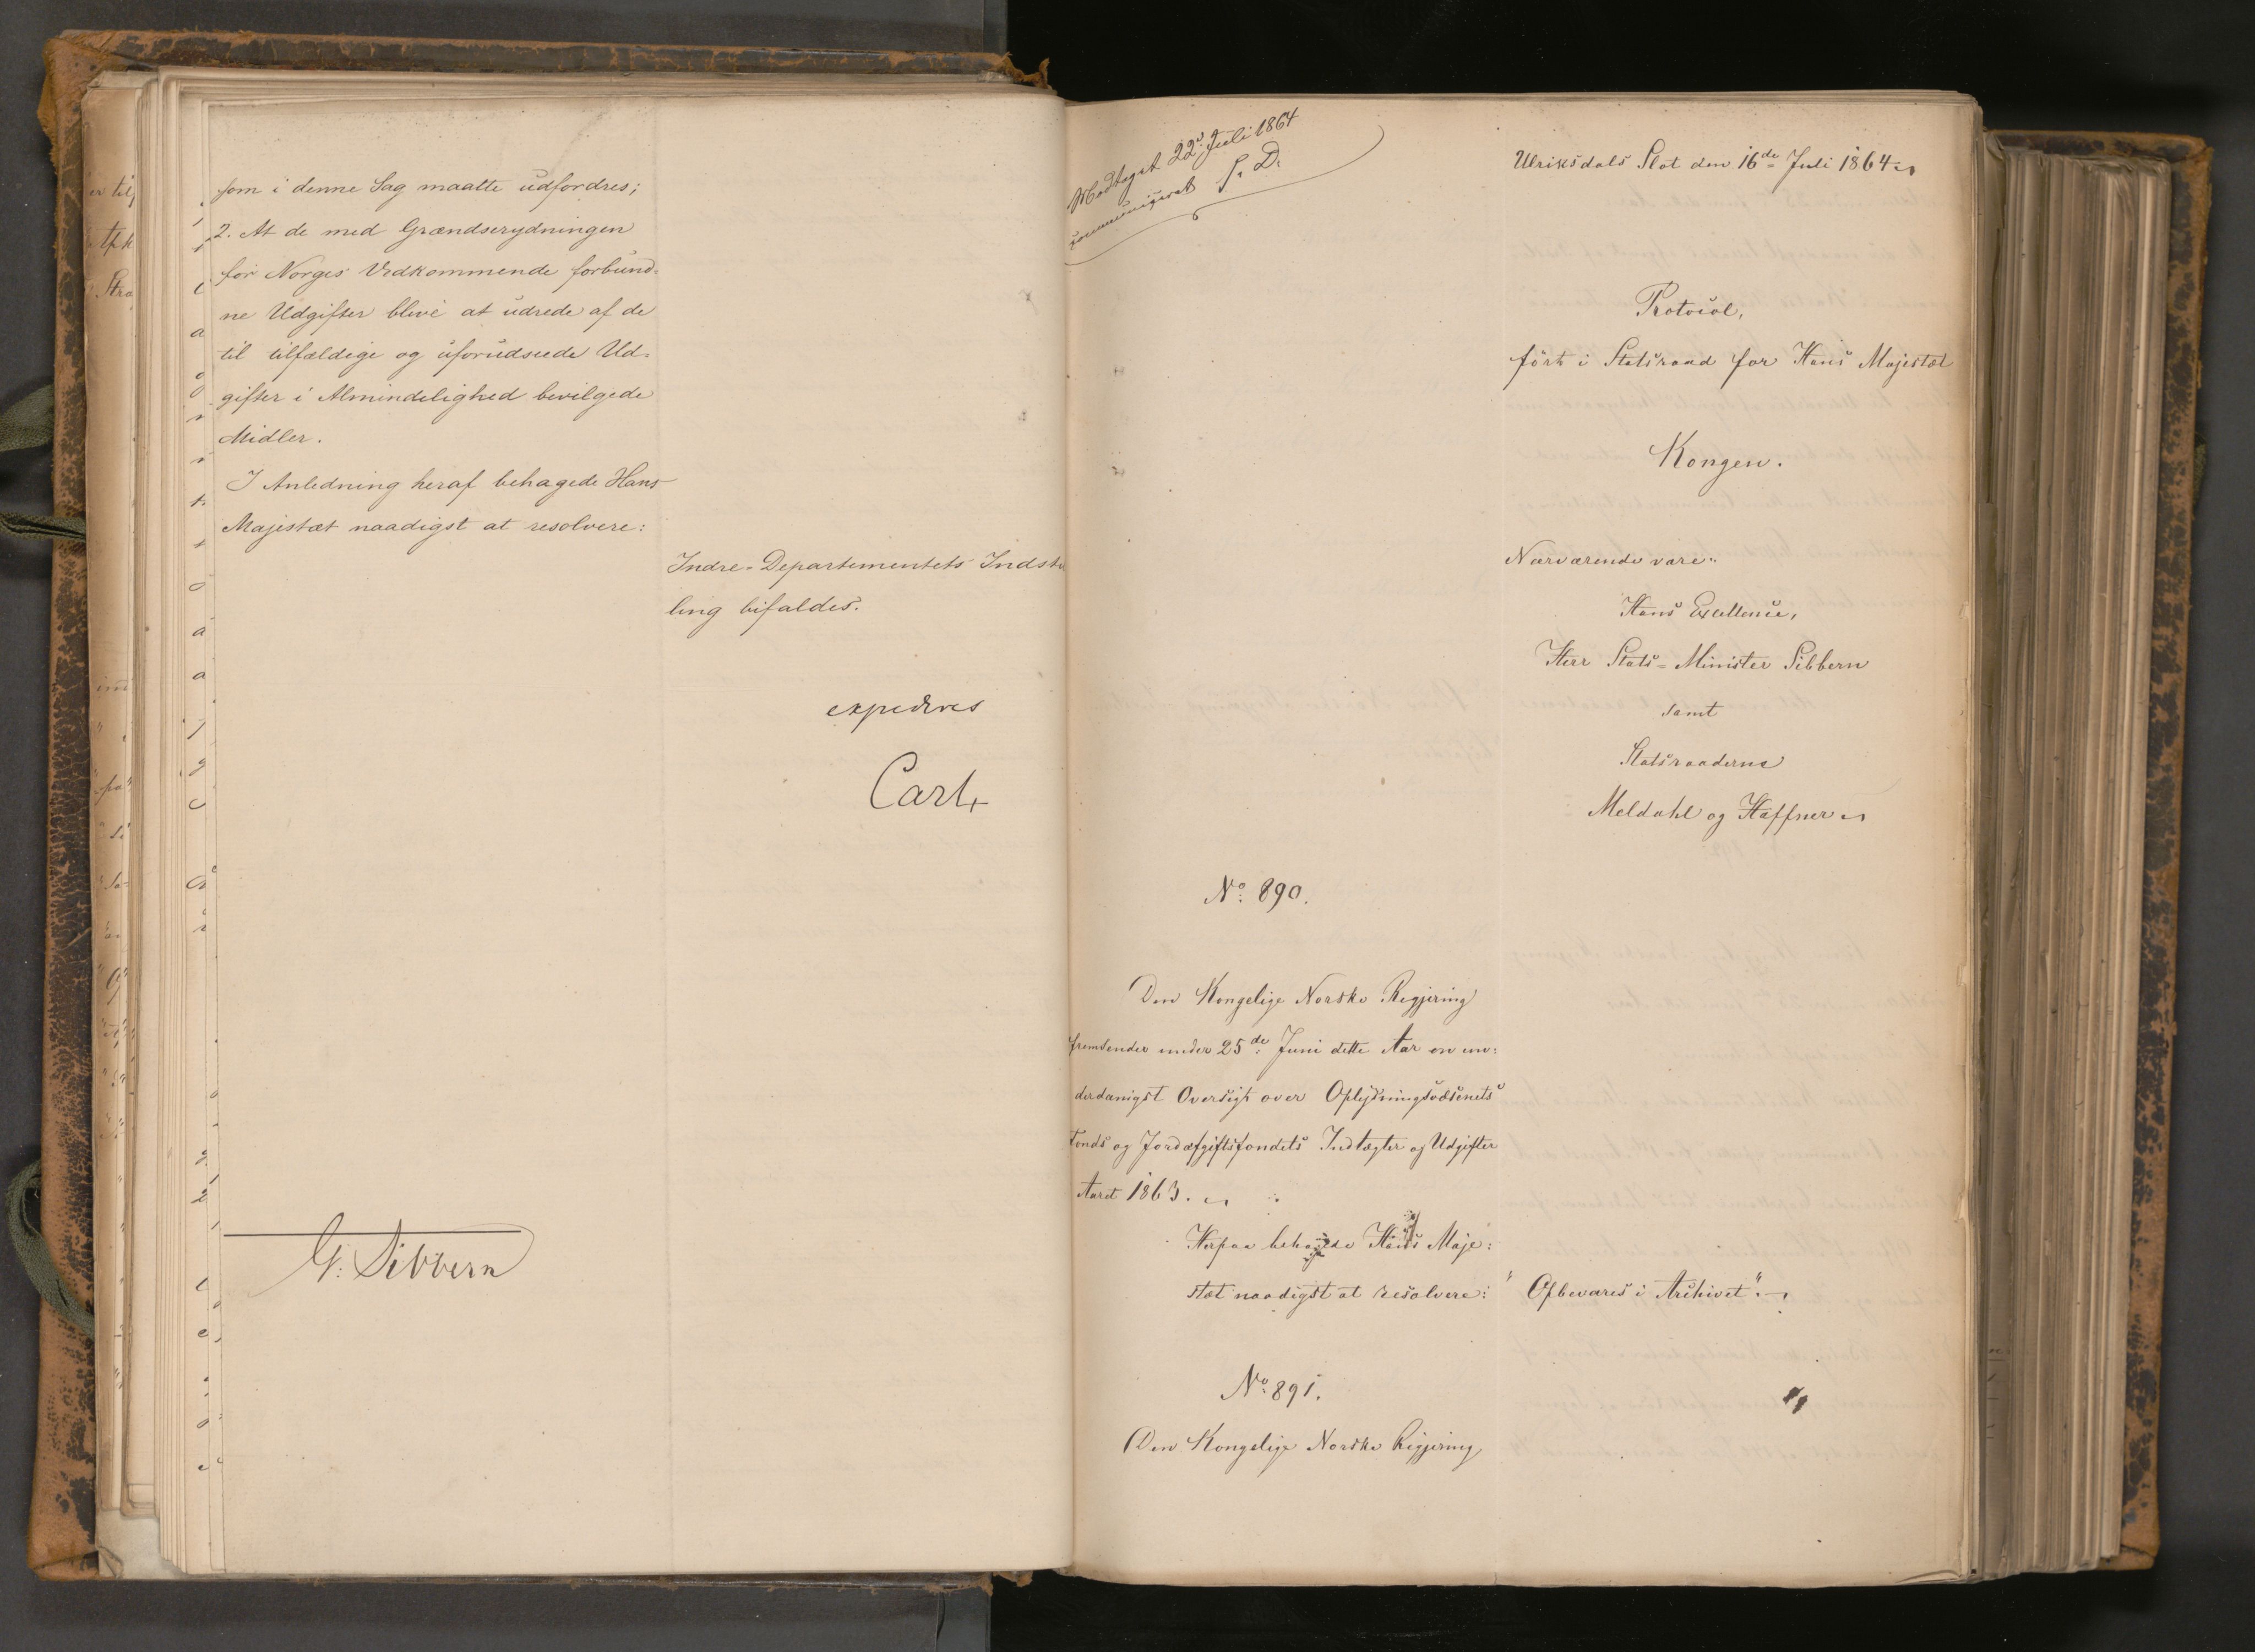 som i denne Sag maatte udfordres;
2. At de med Grændserydningen
for Norges Vedkommende forbund-
ne Udgifter blive at udrede af de
til tilfældige og uforudseede Ud-
gifter i Almindelighed bevilgede
Midler.
I Anledning heraf behagede Hans
Majestæt naadigst at resolvere:
Indre-Departementets Indstil
ling bifaldes.
expederes
Carl
G. Sibbern
Modtaget 22d Juli 1864
communiqueret S. D.
Ulriksdals Slot den 16de Juli 1864
Protocol,
ført i Statsraad for Hans Majestæt
Kongen.
Nærværende vare:
Hans Excellence,
Herr Stats-Minister Sibbern
samt
Statsraaderne
Meldahl og Haffner
No. 890.
Den Kongelige Norske Regjering
fremsender under 25de Juni dette Aar en un-
derdanigst Oversigt over Oplysningsvæsenets
Fonds og Jordafgiftsfondets Indtægter og Udgifter
Aaret 1863.
Herpaa behagede Hans Maje-
stæt naadigst at resolvere: "Opbevares i Archivet".
No. 891.
Den Kongelige Norske Regjering